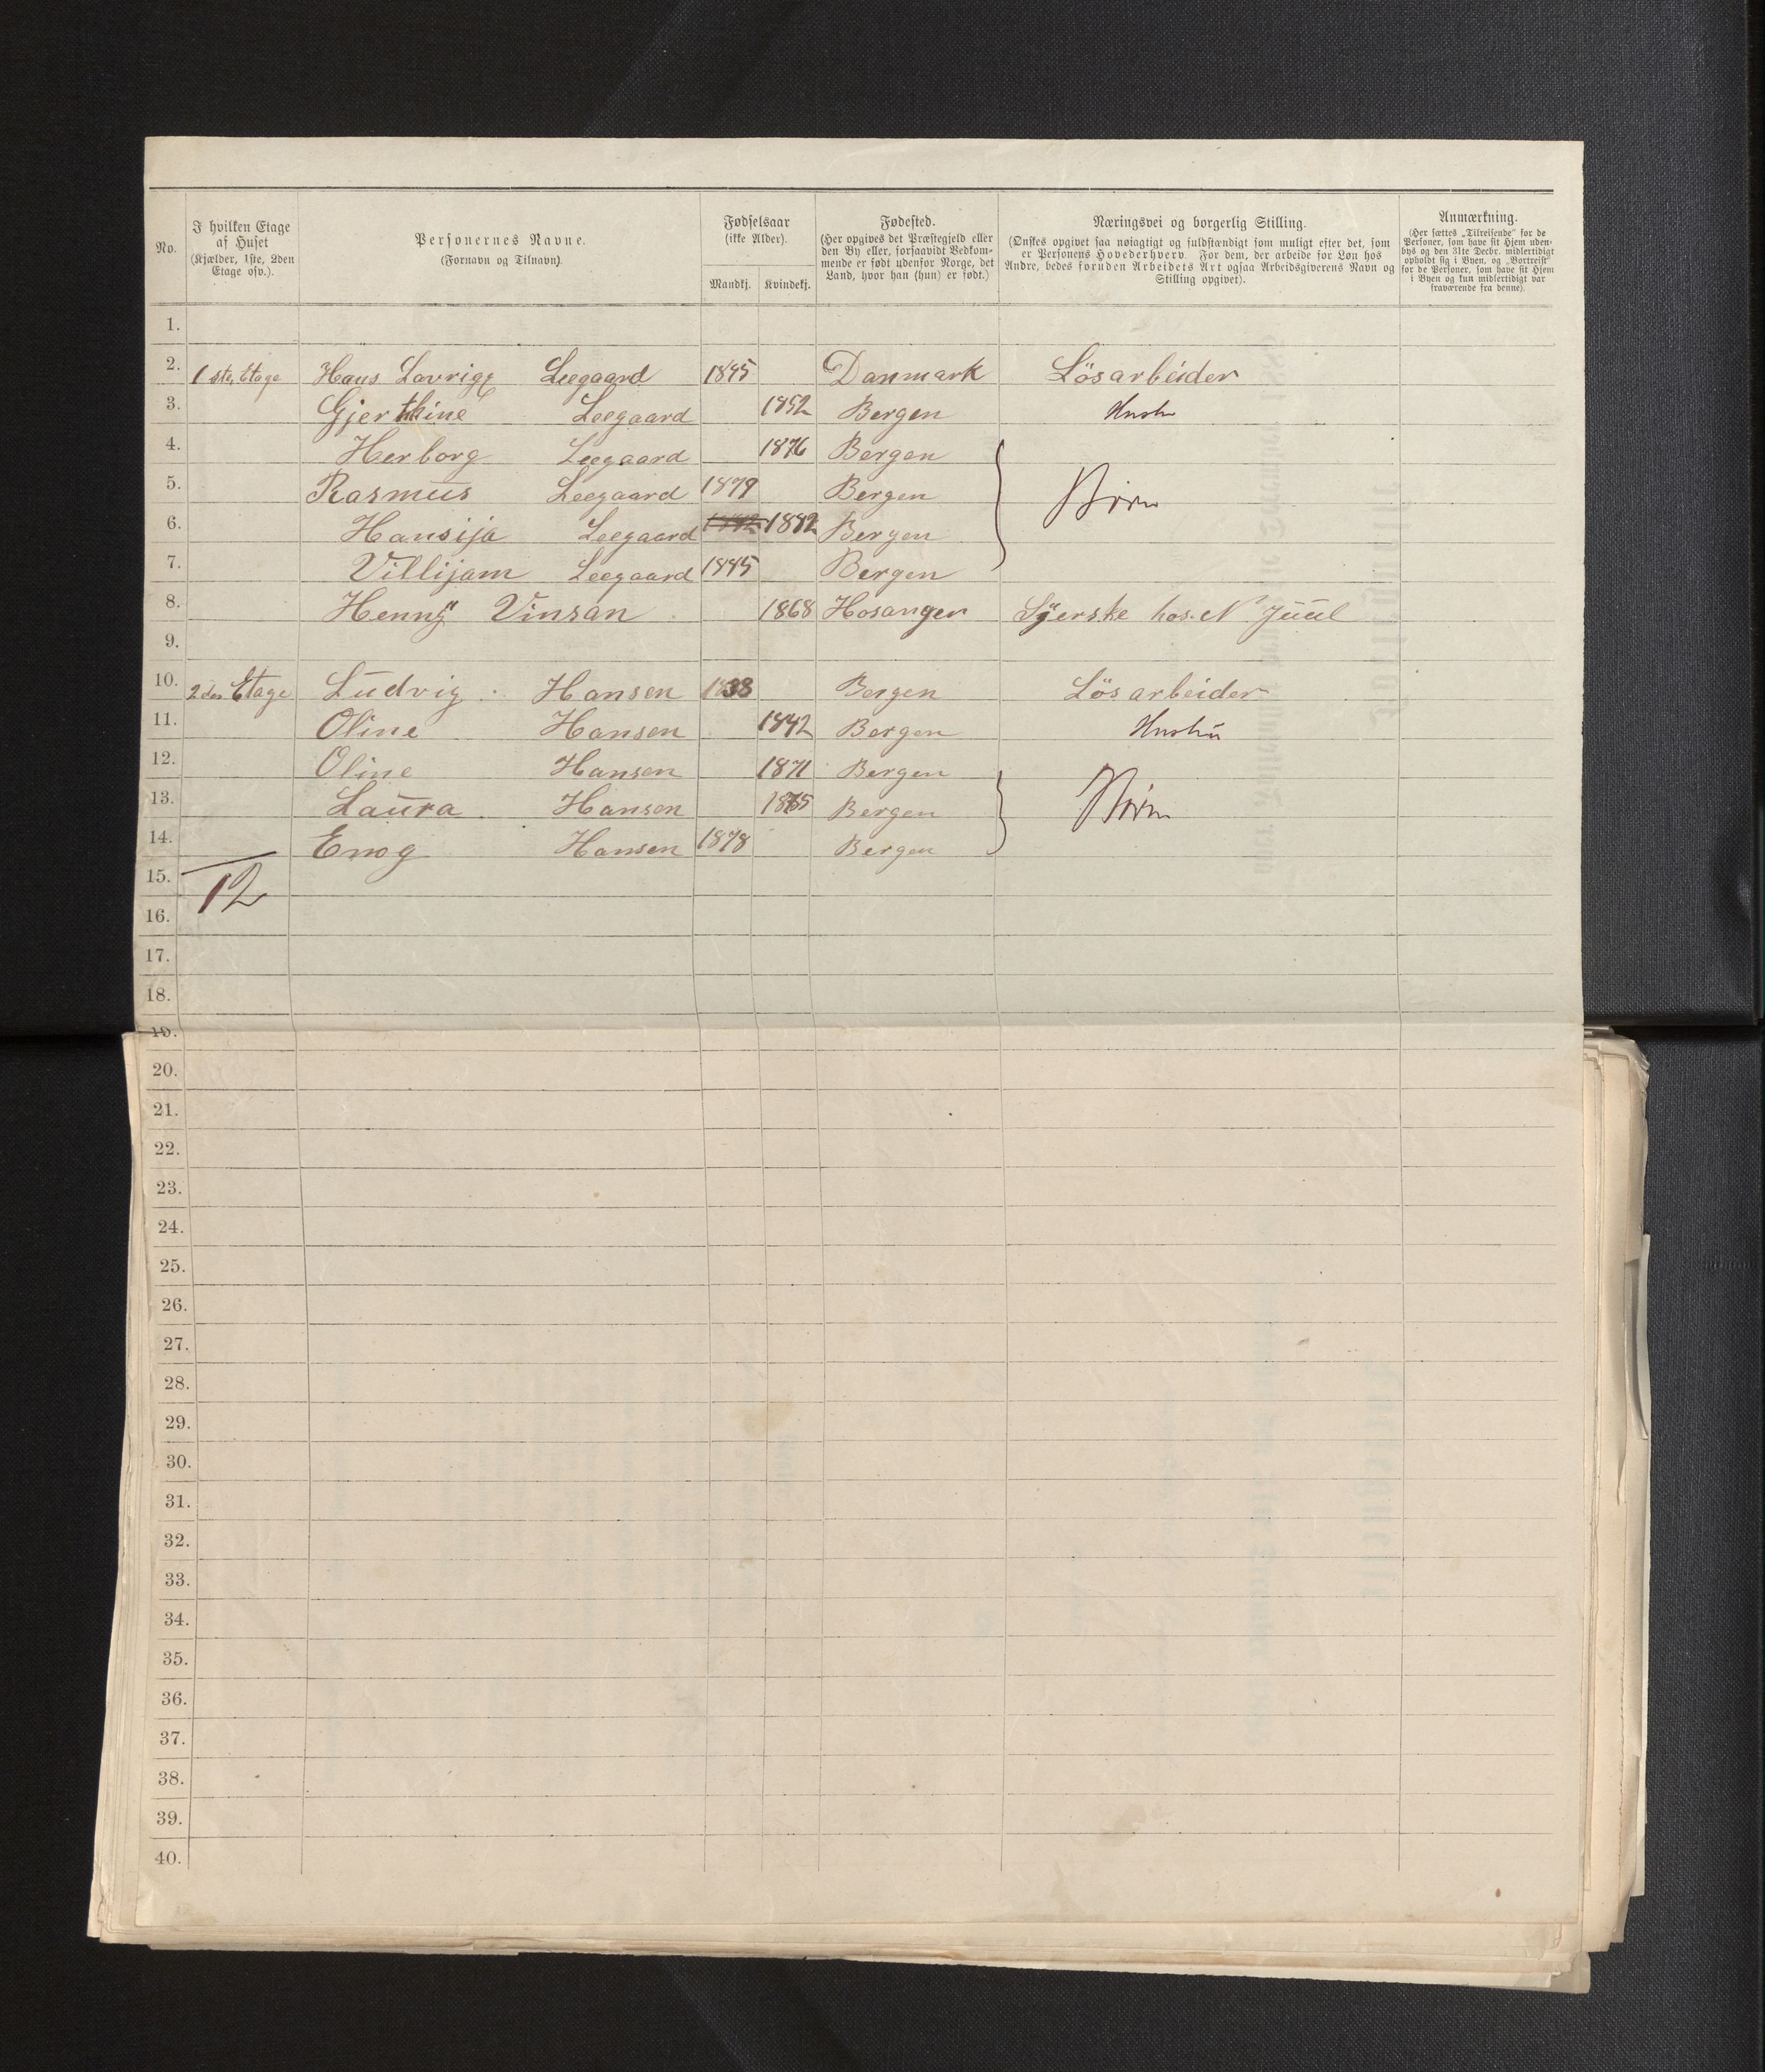 No.
I hvilken Etage
af Huset
(Kjælder, 1ste, 2den
Etage osv.).
Personernes Navne.
(Fornavn og Tilnavn).
Fødselsaar
(ikke Alder).
Mandkj. Kvindekj.
Fødested.
(Her opgives det Præstegjeld eller
den By eller, forsaavidt Vedkom-
mende er født udenfor Norge, det
Land, hvor han (hun) er født.)
Næringsvei og borgerlig Stilling.
(Ønskes opgivet saa nøiagtigt og fuldstændigt som muligt efter det, som
er Personens Hovederhverv. For dem, der arbeide for Løn hos
Andre, bedes foruden Arbeidets Art ogsaa Arbeidsgiverens Navn og
Stilling opgivet).
Anmærkning.
(Her sættes „Tilreisende" for de
Personer, som have sit Hjem uden-
bys og den 31te Decbr. midlertidigt
opholdt sig i Byen, og „Bortreist"
for de Personer, som have sit Hjem
i Byen og kun midlertidigt var
fraværende fra denne).
1.
2. 1ste Etage Hans Lavrig Leegaard 1845 Danmark Lösarbeider
3. Gjerthine Leegaard 1852 Bergen Hustr
4. Herborg Leegaard 1876 Bergen
5. Rasmus Leegaard 1879 Bergen Börn
6. Hansija Leegaard 1882 Bergen
7. Villijam Leegaard 1885 Bergen
8. Henny Vinsan 1868 Hosanger Syerske hos. N Juul
9.
10. 2den Etage Ludvig Hansen 1838 Bergen Lösarbeider
11. Oline Hansen 1842 Bergen Hustru
12. Oline Hansen 1871 Bergen
13. Laura Hansen 1875 Bergen Börn
14. Enog Hansen 1878 Bergen
15. 12
16.
17.
18.
19.
20.
21.
22.
23.
24.
25.
26.
27.
28.
29.
30.
31.
32.
33.
34.
35.
36.
37.
38.
39.
40.